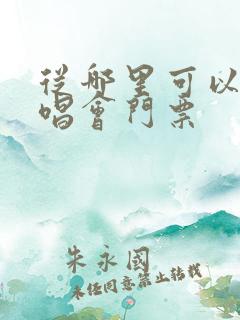 從哪里可以
唱會門票
朱永國
未经同意禁止转载